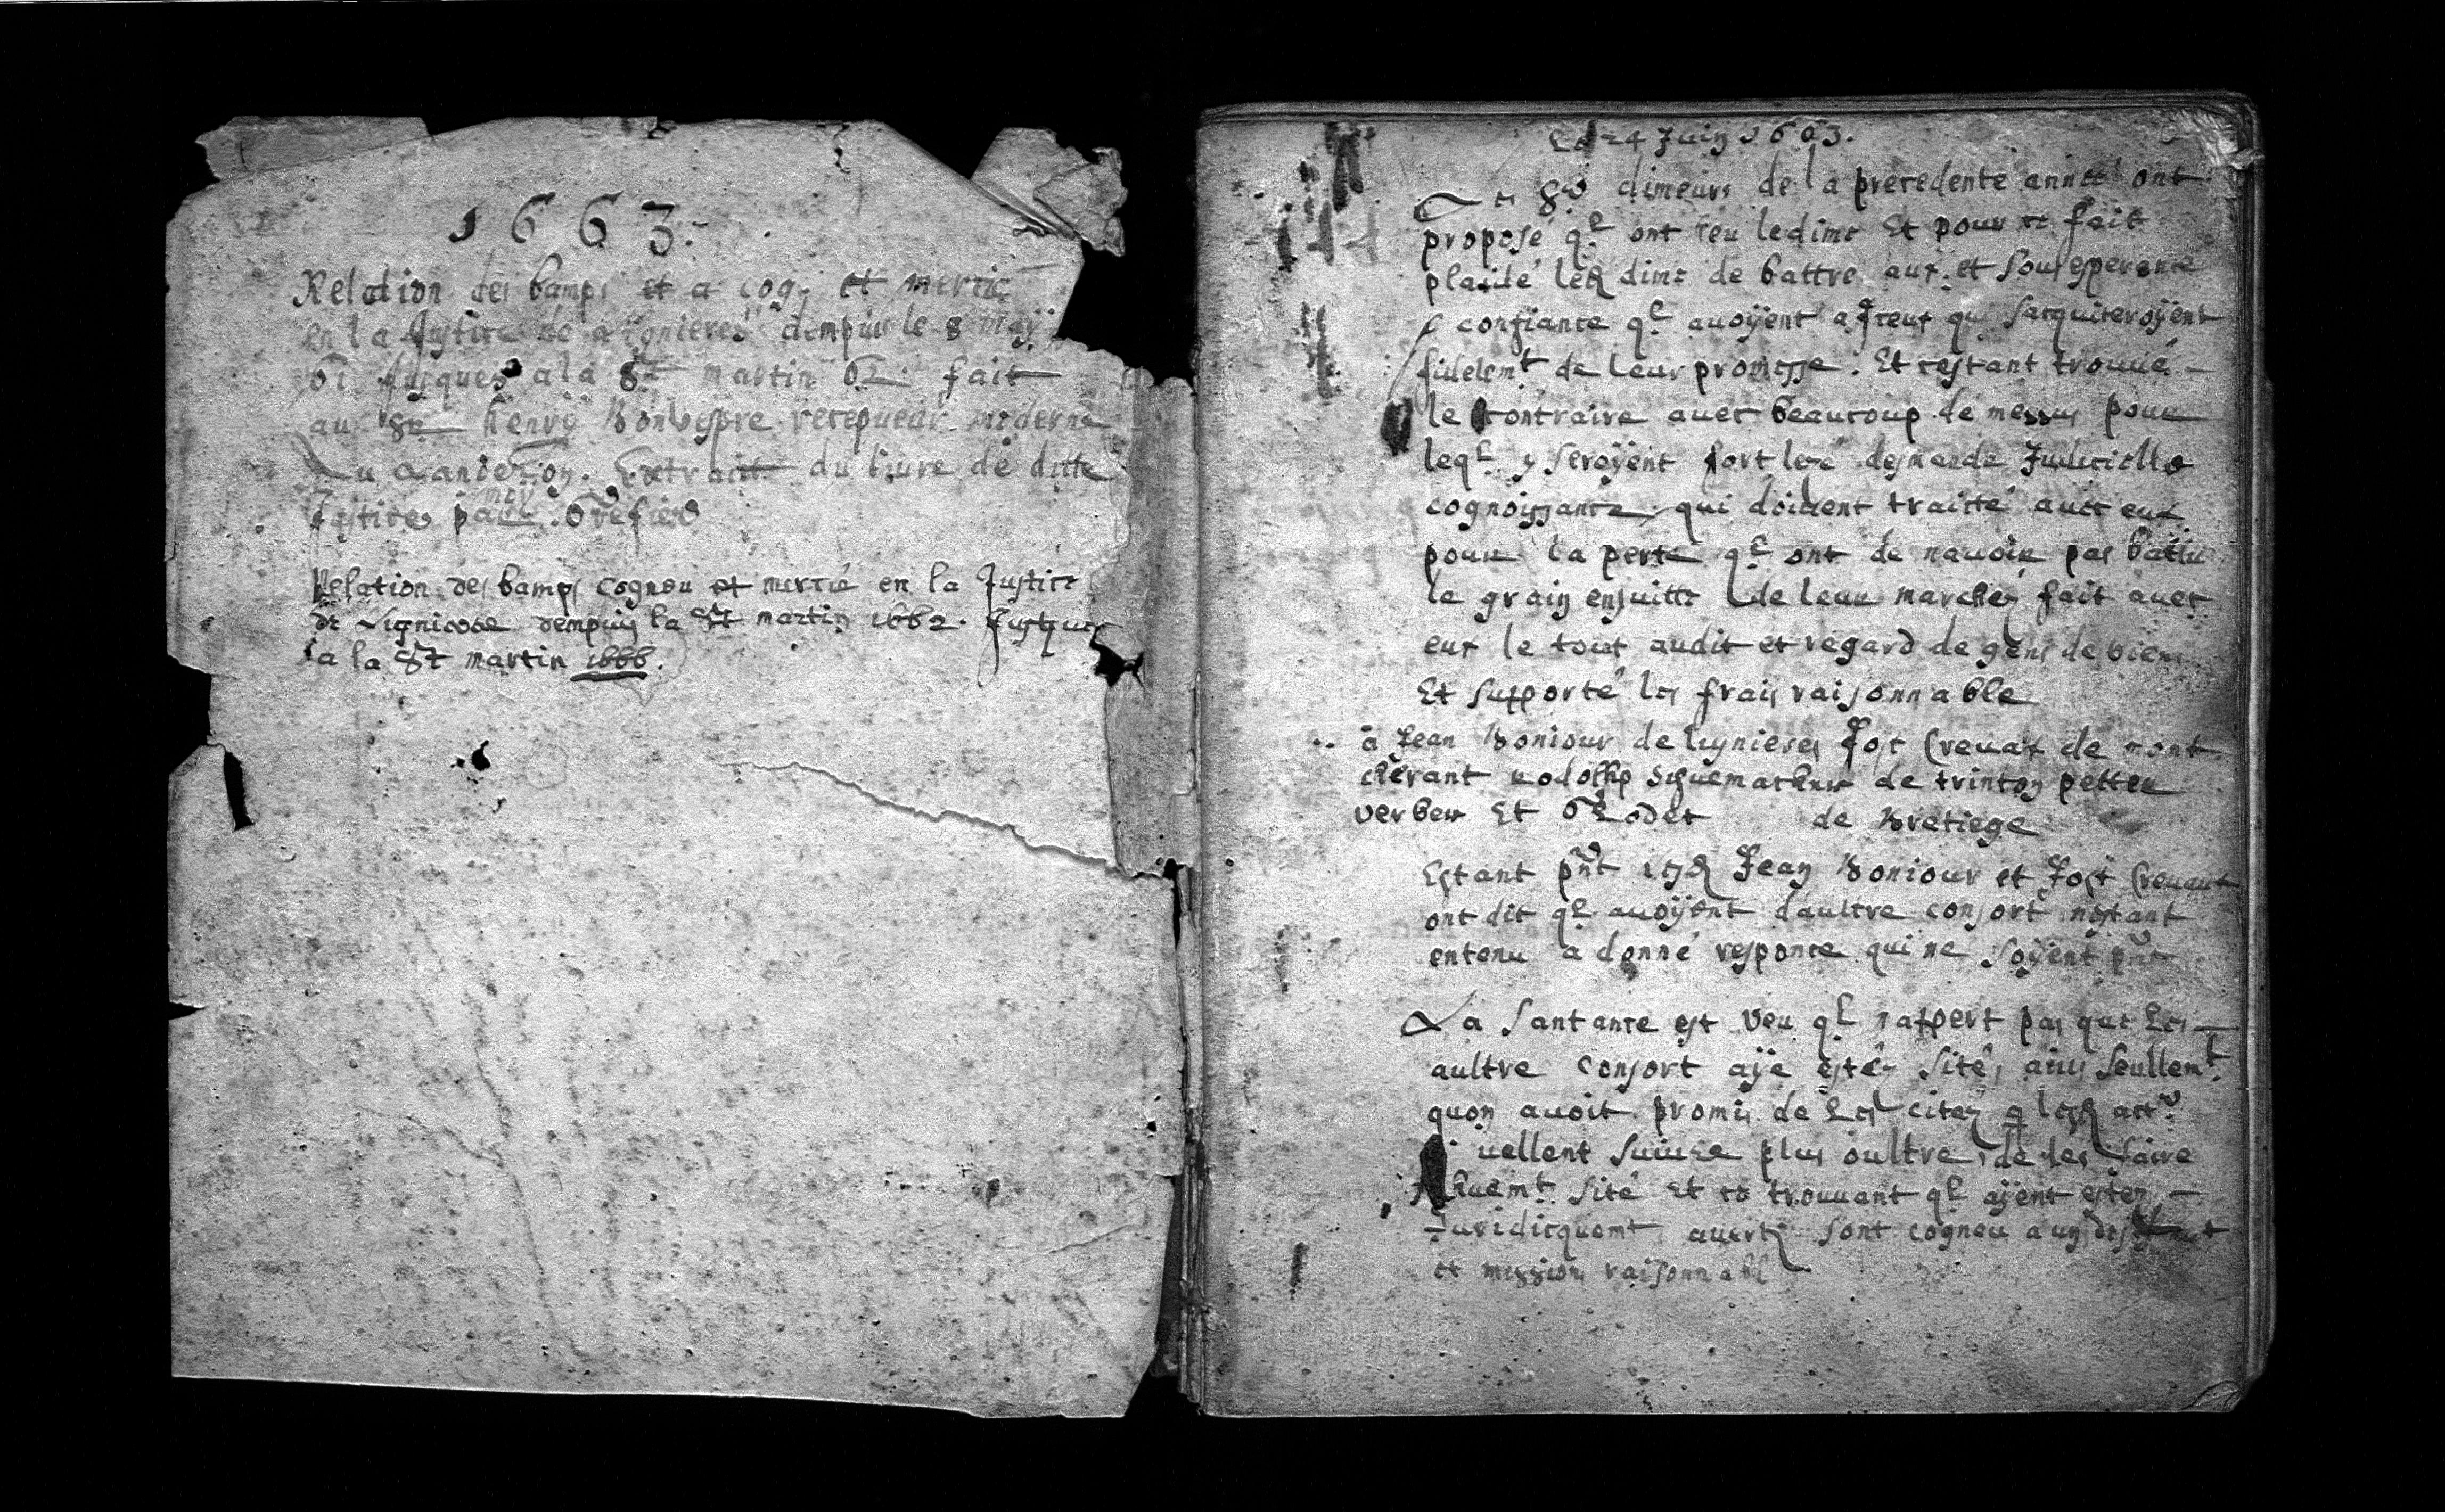 1663.
Relation des bamps et a cog. et mercie
en la Justice de Lignieres dempuis le 8 maÿ
61 Jusques a la St martin 62. fait
au Sr henrÿ Bonvespre recepueur moderne
Du Landeron. Extrait du liure de ditte
Justice par moy Grefier
Relation des bamps cogneu et mercié en la Justice
de Lignieres dempuis la St martin 1662. Jusques
a la St martin 1666.
Le 24 Juin 1663.
Les Srs dimeurs de la precedente année ont
proposé ql ont reu ledime Et pour ce fait
plaidé led dime de battre aux. et sous esperance
confiance ql auoÿent a ceux qui sacquiteroÿent
fidelemt de leur promesse. Et cestant trouué
le contraire auec beaucoup de messus pour
leql y seroÿent fort lezé desmande Judicielle
cognoissance qui doiuent traitté auec eux
pour la perte ql ont de nauoir pas battu
le grain ensuitte de leur marchez fait auec
eux le tout audit et regard de gens de bien
Et supporté les frais raisonnable
a Jean Bonjour de lignieres Jost Creuat de mont
cheuant Rodolhp Schuemacher de trinton petter
verber Et Odet de Bretiege
Estant pnt lesd Jean Bonjour et Jost Creuaut
ont dit ql auoÿent daultre consort nestant
entenu a donné responce qui ne soÿent pnt
La santance est veu ql nappert pas que les
aultre consort aÿe estéz sités ains seullemt
quon auoit promis de les citez q lesd actrs
uellent suiure plus oultre, de les faire
sité Et se trouuant ql aÿent estez
Juridicquemt auertz sont cogneu a un
et missions raisonnabl